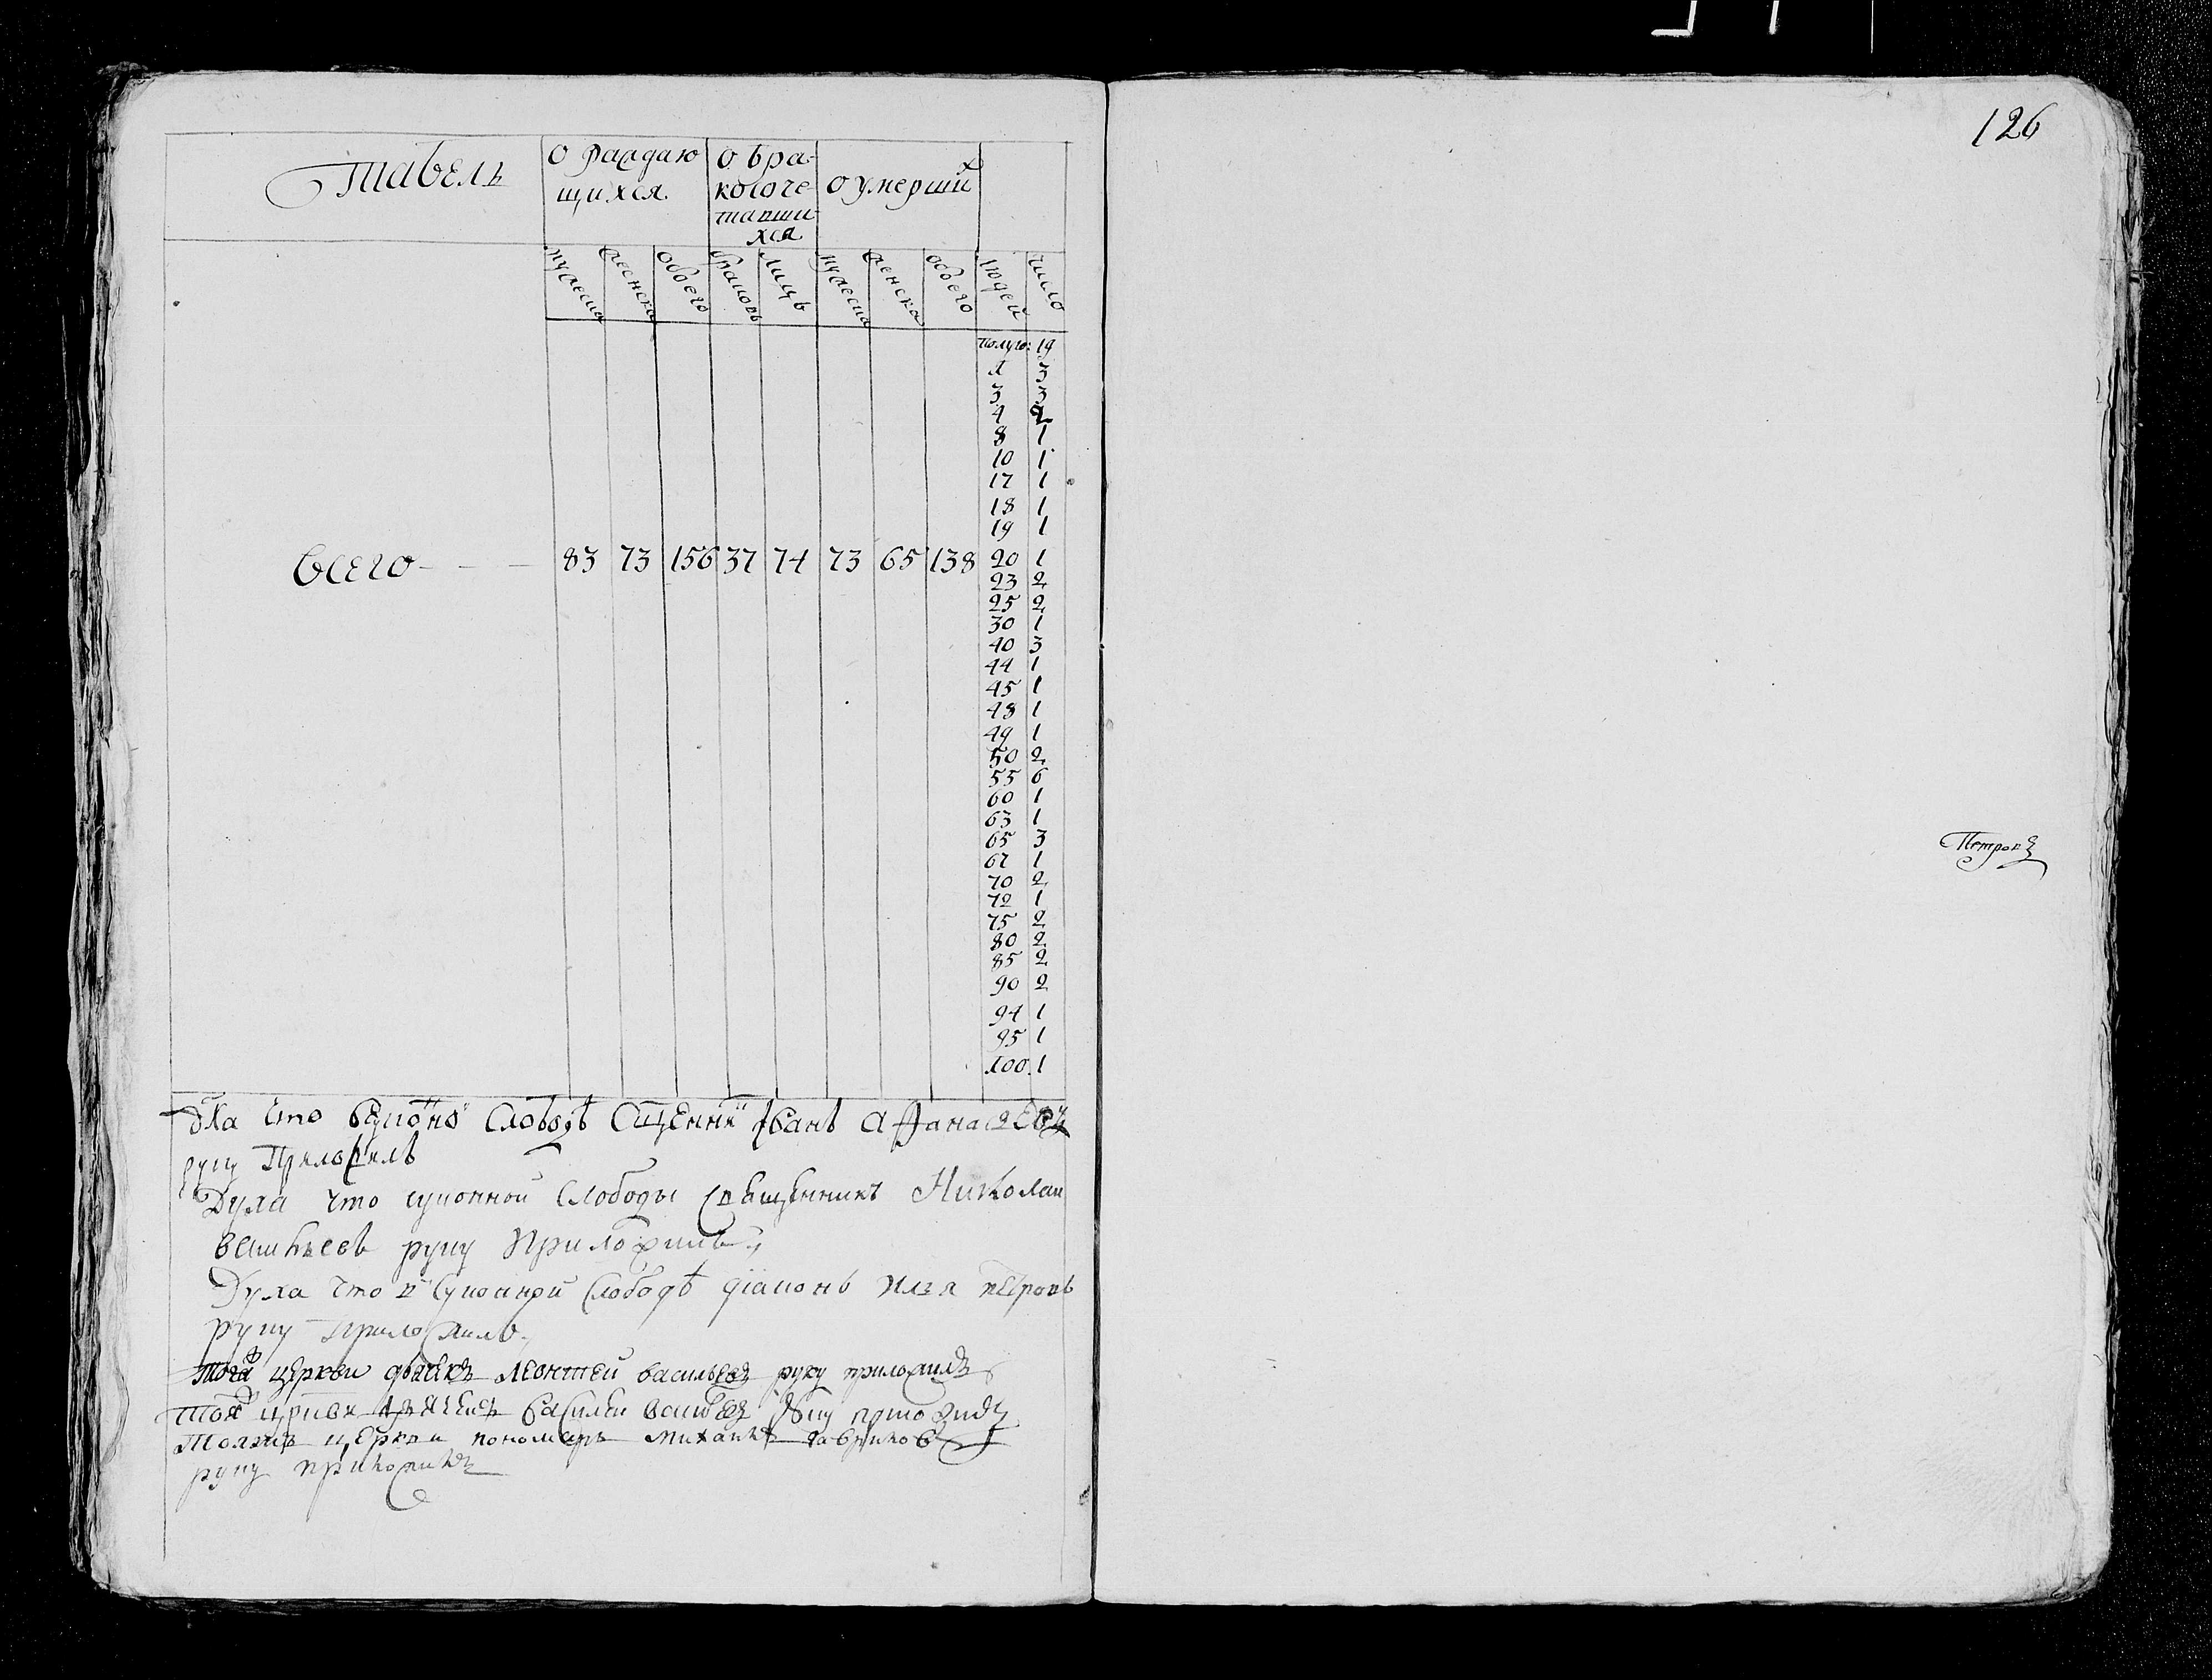 126
Табель
о раждаю
щихся
о бра-
косоче-
тавши-
хся
о умерших
мужеска
женска
обоего
браковъ
лицъ
мужеска
женска
обоего
людей
число
полуго: 19
1 3
3 3
4 2
8 1
10 1
17 1
18 1
19 1
всего - - - 83 73 156 37 74 73 65 138 20 1
23 2
25 2
30 1
40 3
44 1
45 1
48 1
49 1
50 2
55 6
60 1
63 1
65 3
67 1
70 2
72 1
75 2
80 2
85 2
90 2
94 1
95 1
100. 1
дха что Слободѣ Сщенник Иванъ Афанасиевъ
руку Приложилъ
Духа что суконной Слободы священникъ Николаи
руку приложилъ
Духа что в Суконной Слободѣ діаконъ Илья петровъ
руку приложилъ
Тоя церкви дьячекъ Леонтей васильевъ руку приложилъ
Тоя церкви василеи
церкви пономарь михаилъ гавриловъ
руку приложилъ
Петровъ